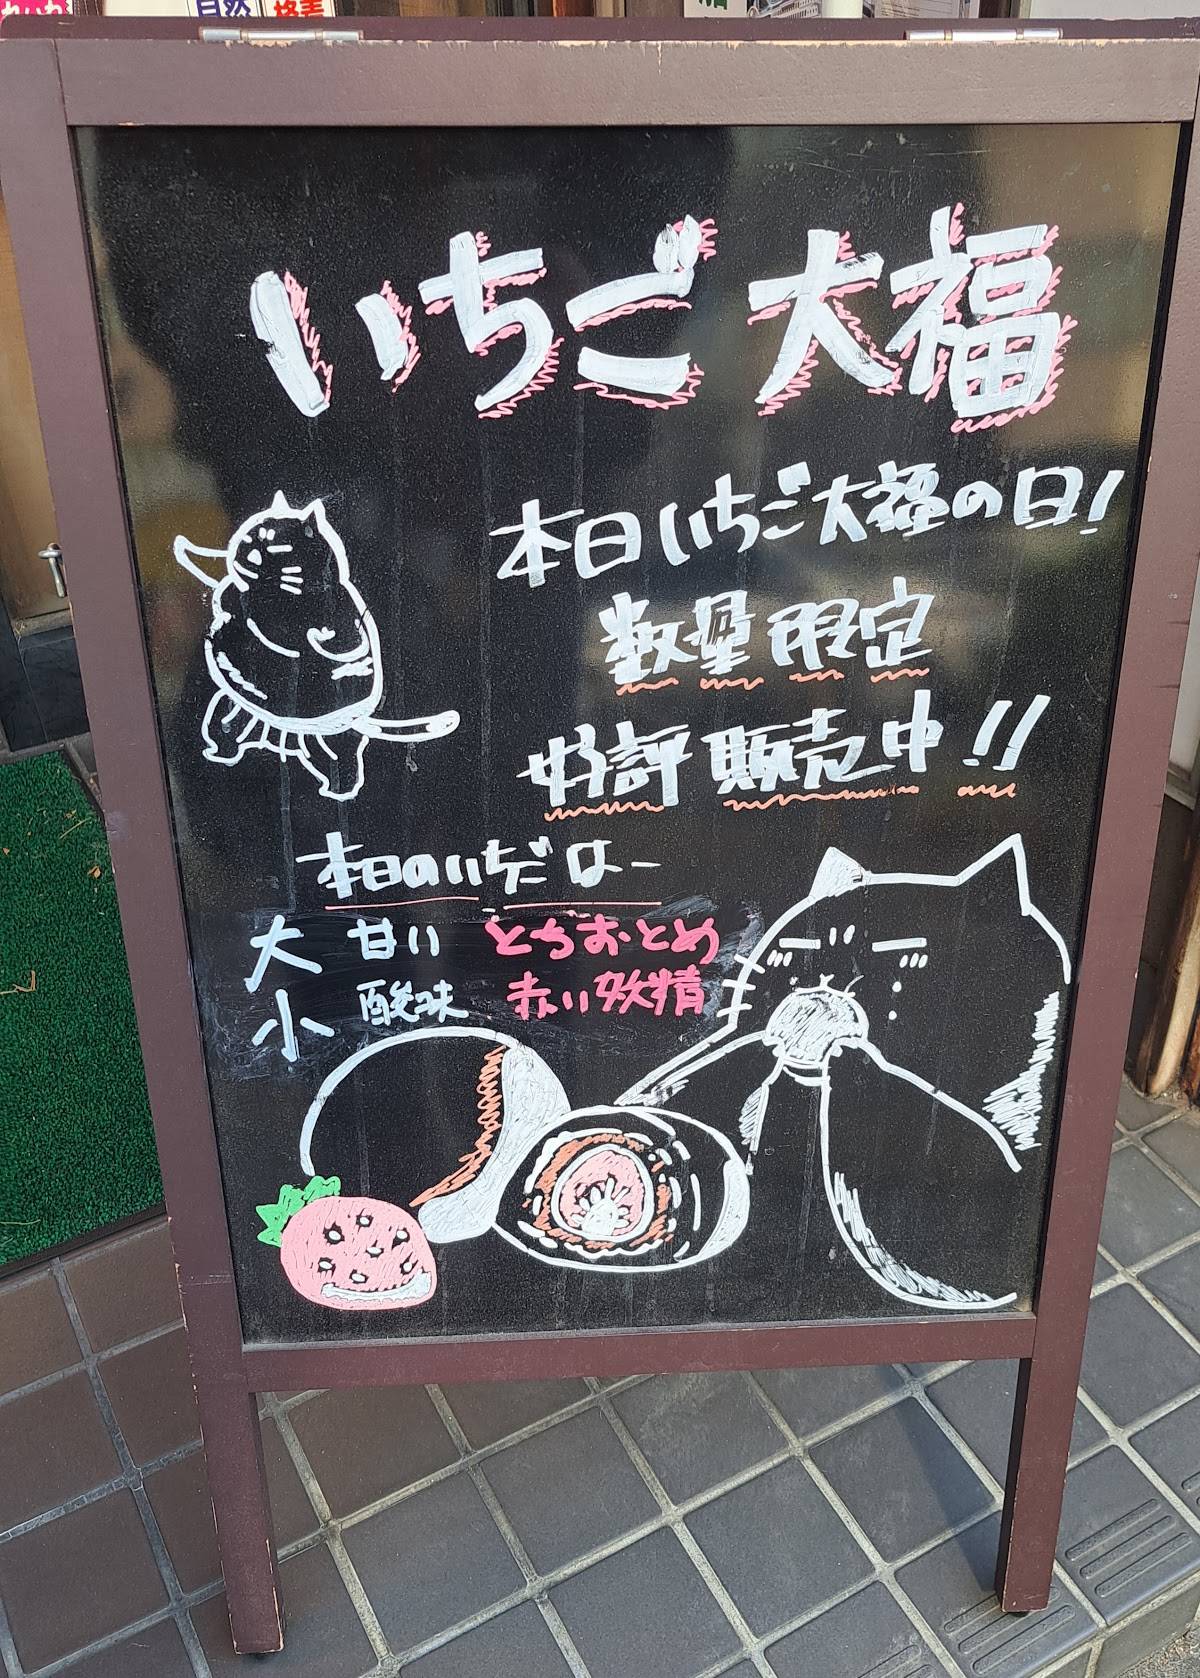 れいわ
自然
格差
いちご大福
本日いちご大福の日!
数量限定
好評販売中!!
本日のいちごはー
大 甘い とちおとめ
小 酸味 赤い妖精